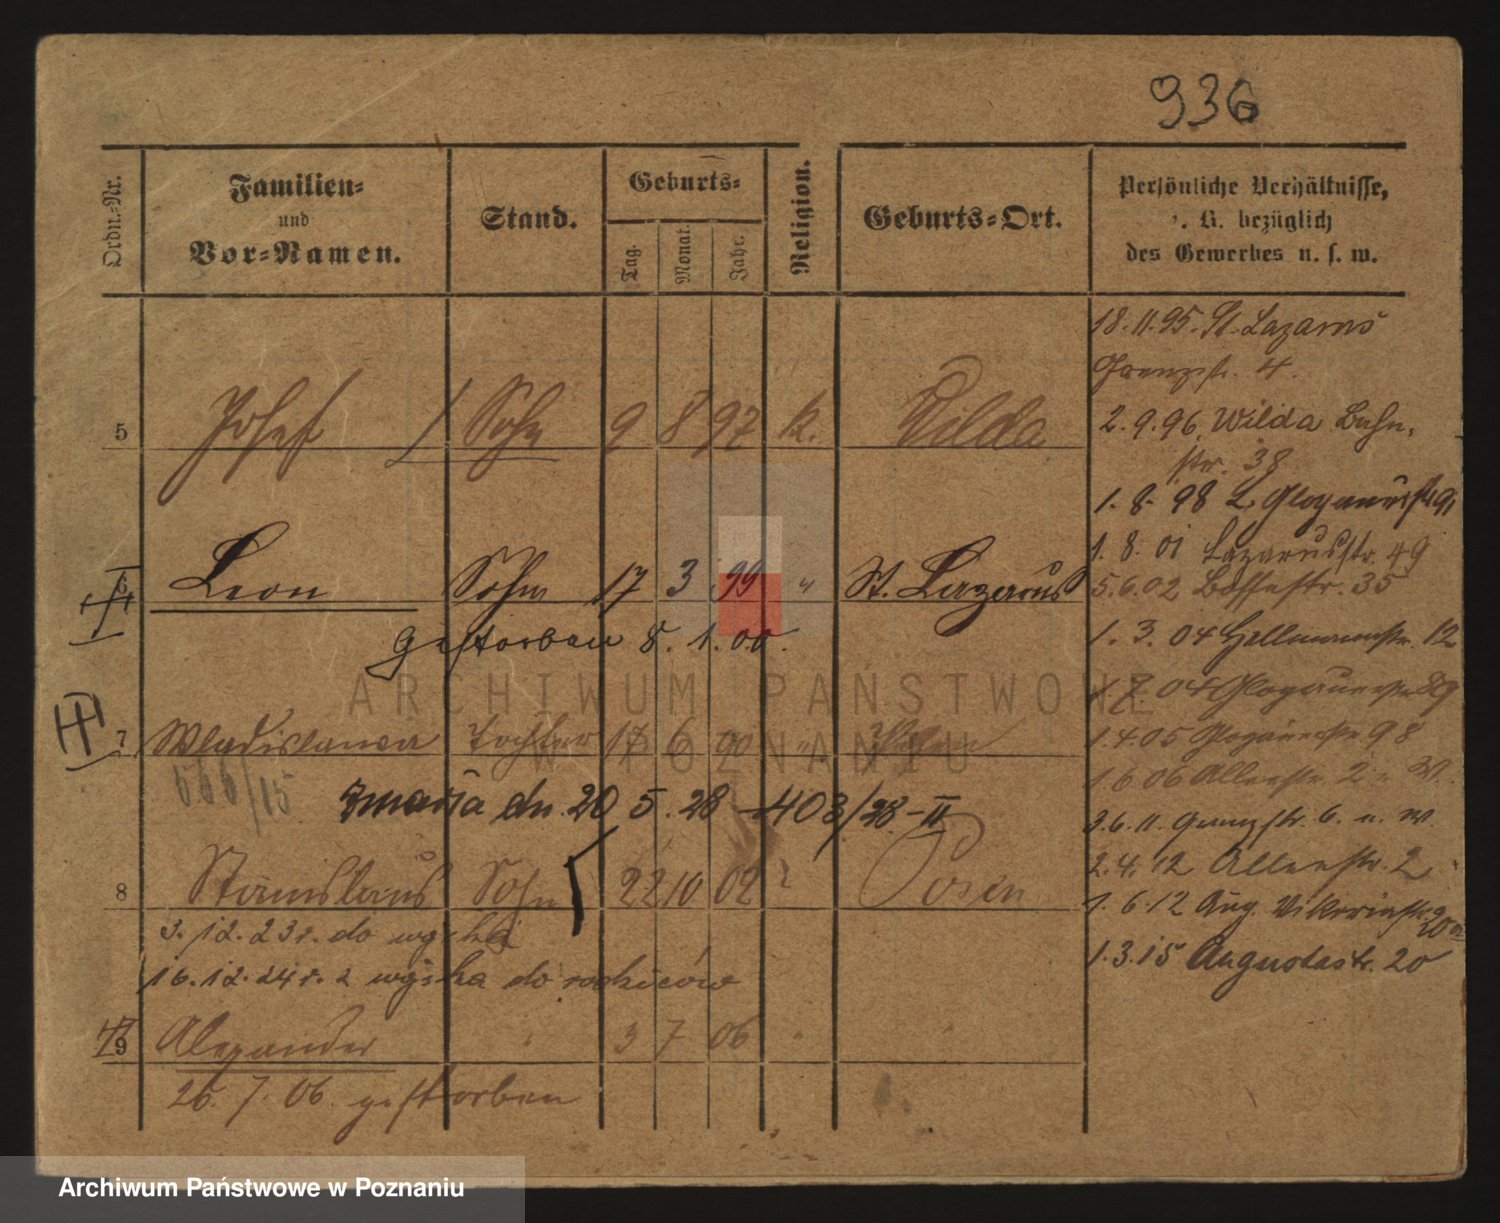 936
Ordn.-Nr.
Familien-
und
Vor-Namen.
Stand.
Geburts-
Tag.
Monat.
Jahr.
Religion.
Geburts-Ort.
Persönliche Verhältnisse,
z. B. bezüglich
des Gewerbes u. s. w.
18.11.95. St. Lazarus
Grenzstr. 4.
5 Josef Sohn 9 8 97 k. Wilda
2.9.96. Wilda Bahn-
str. 38
1.8.98 L. Glogauerstr 91
1.8.01 Lazarusstr. 49
6 Leon Sohn 17 3 99 " St. Lazarus
5.6.02 35
gestorben 8.1.00.
1.3.04 Hellmannstr. 12
1.7.04 Glogauerstr 89
7 Wladislawa Tochter 17 6 00 " Posen
1.4.05 Glogauerstr 98
566/15
1.6.06 Allerstr. 2 u. W.
zmarła dn. 20 5. 28 403/28-II
3.6.11. 6. u. W.
2.4.12 2
8 Stanislaus Sohn 22 10 02 Posen
1.6.12 Aug. Viktoriastr. 20
3.12.23r. do wojska
1.3.15 Augustastr. 20
16.12.24r. z wojska do rodziców
9 Alexander " 3 7 06 " "
26.7.06. gestorben
ARCHIWUM PAŃSTWOWE
W POZNANIU
Archiwum Państwowe w Poznaniu